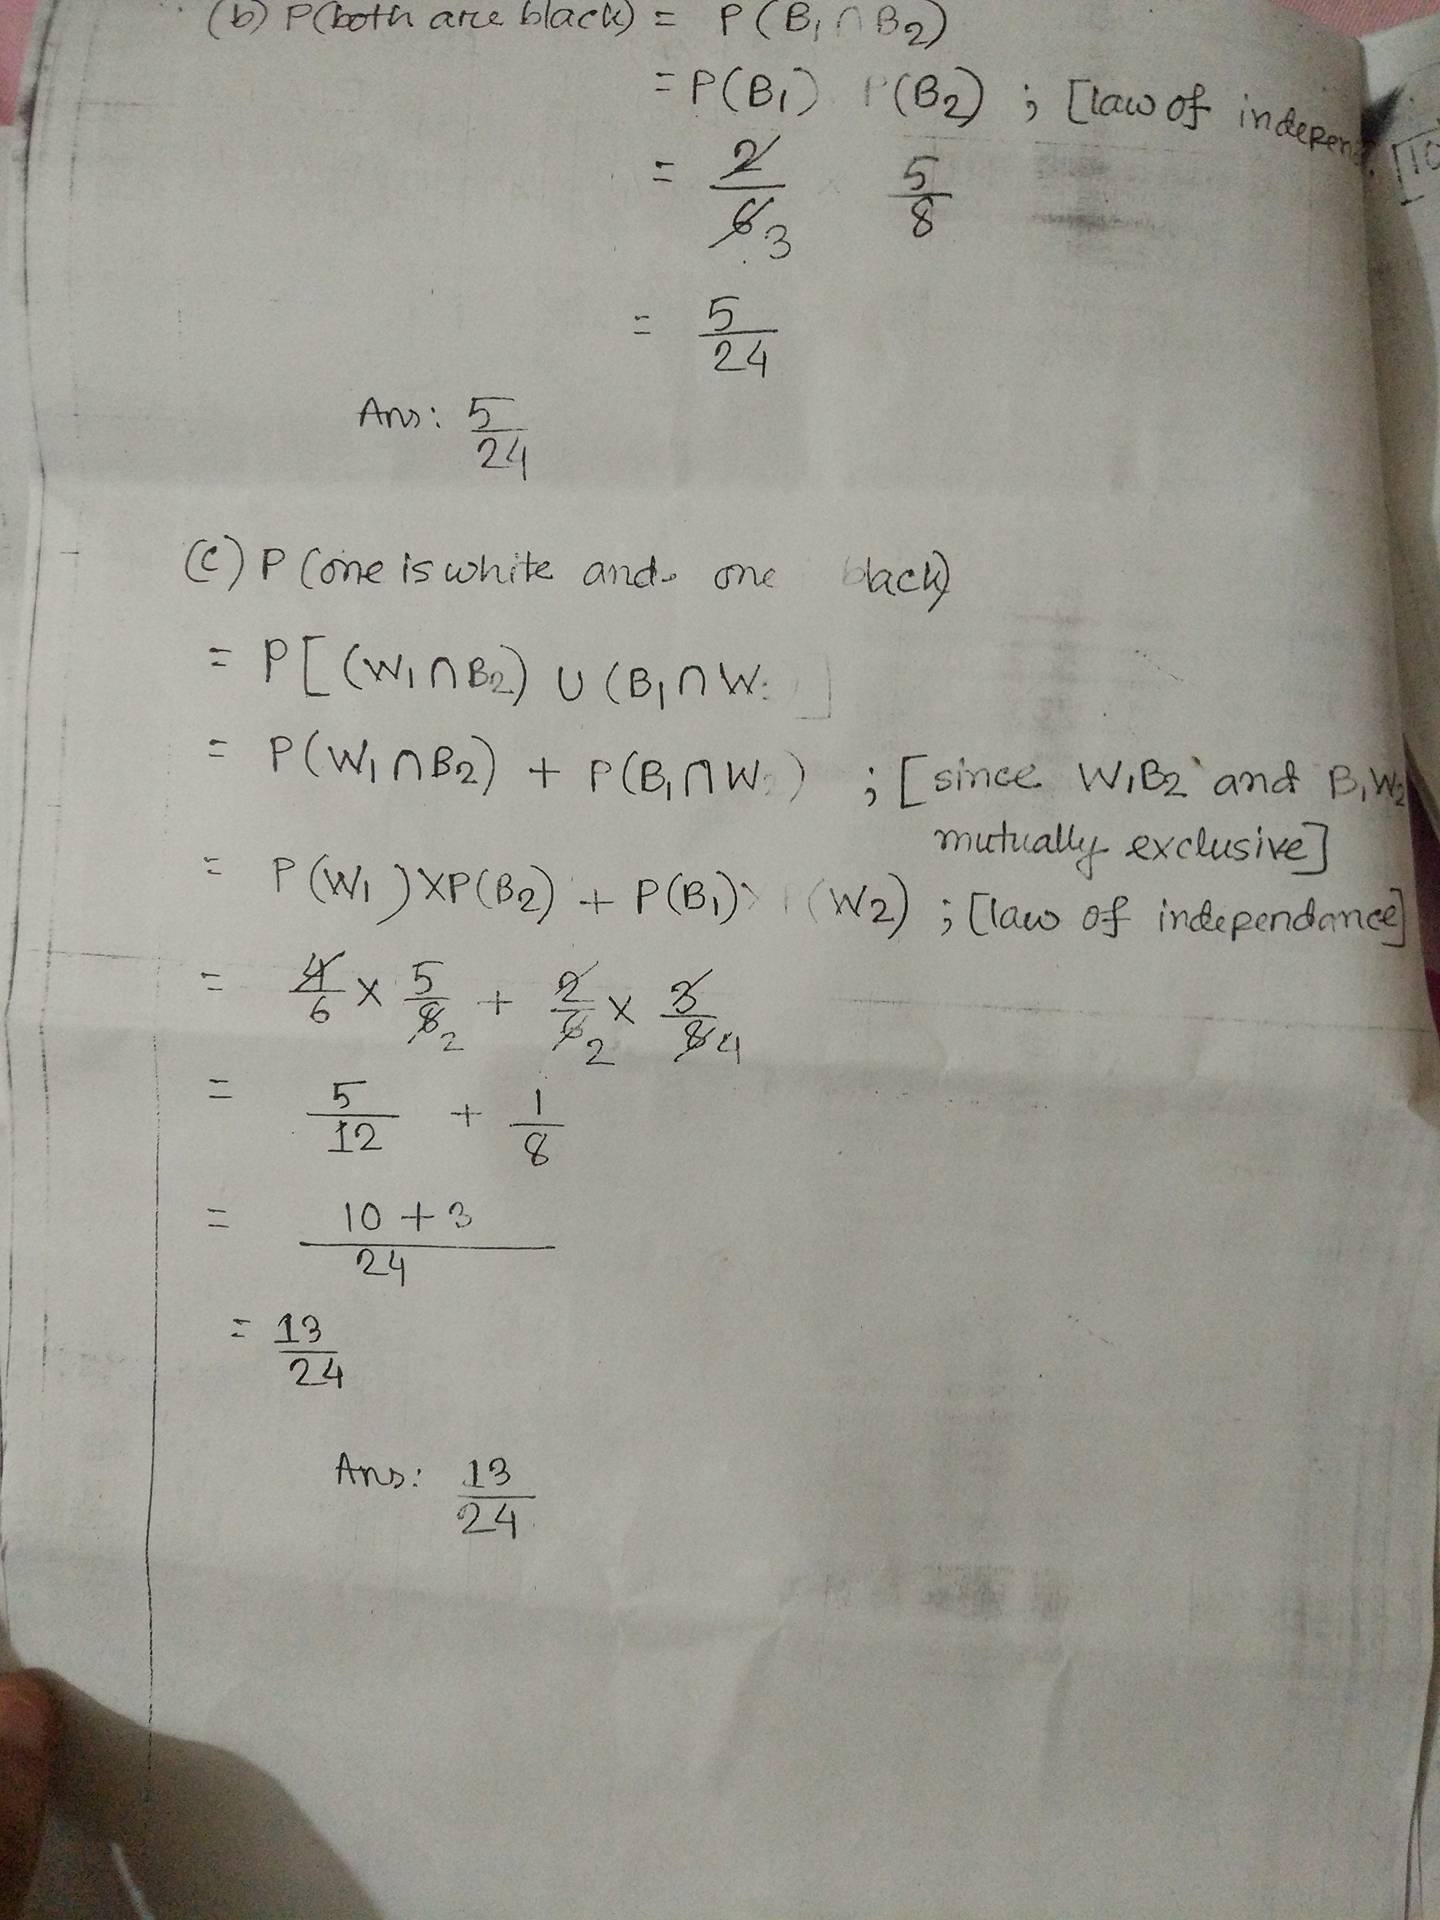 (b) P(both are black) = P(B₁∩B₂)
= P(B₁) P(B₂) ; [law of
= 2/6 3 5/8
= 5/24
Ans: 5/24
(c) P (one is white and one black)
= P[(W₁∩B₂) ∪ (B₁∩W ]
= P(W₁∩B₂) + P(B₁∩W₂) ; [since W₁B₂ and B₁W₂
mutually exclusive]
= P(W₁)×P(B₂) + P(B₁)×P(W₂) ; [law of independance]
= 4/6 × 5/8 2 + 2/6 2 × 3/8 4
= 5/12 + 1/8
= 10+3/24
= 13/24
Ans: 13/24